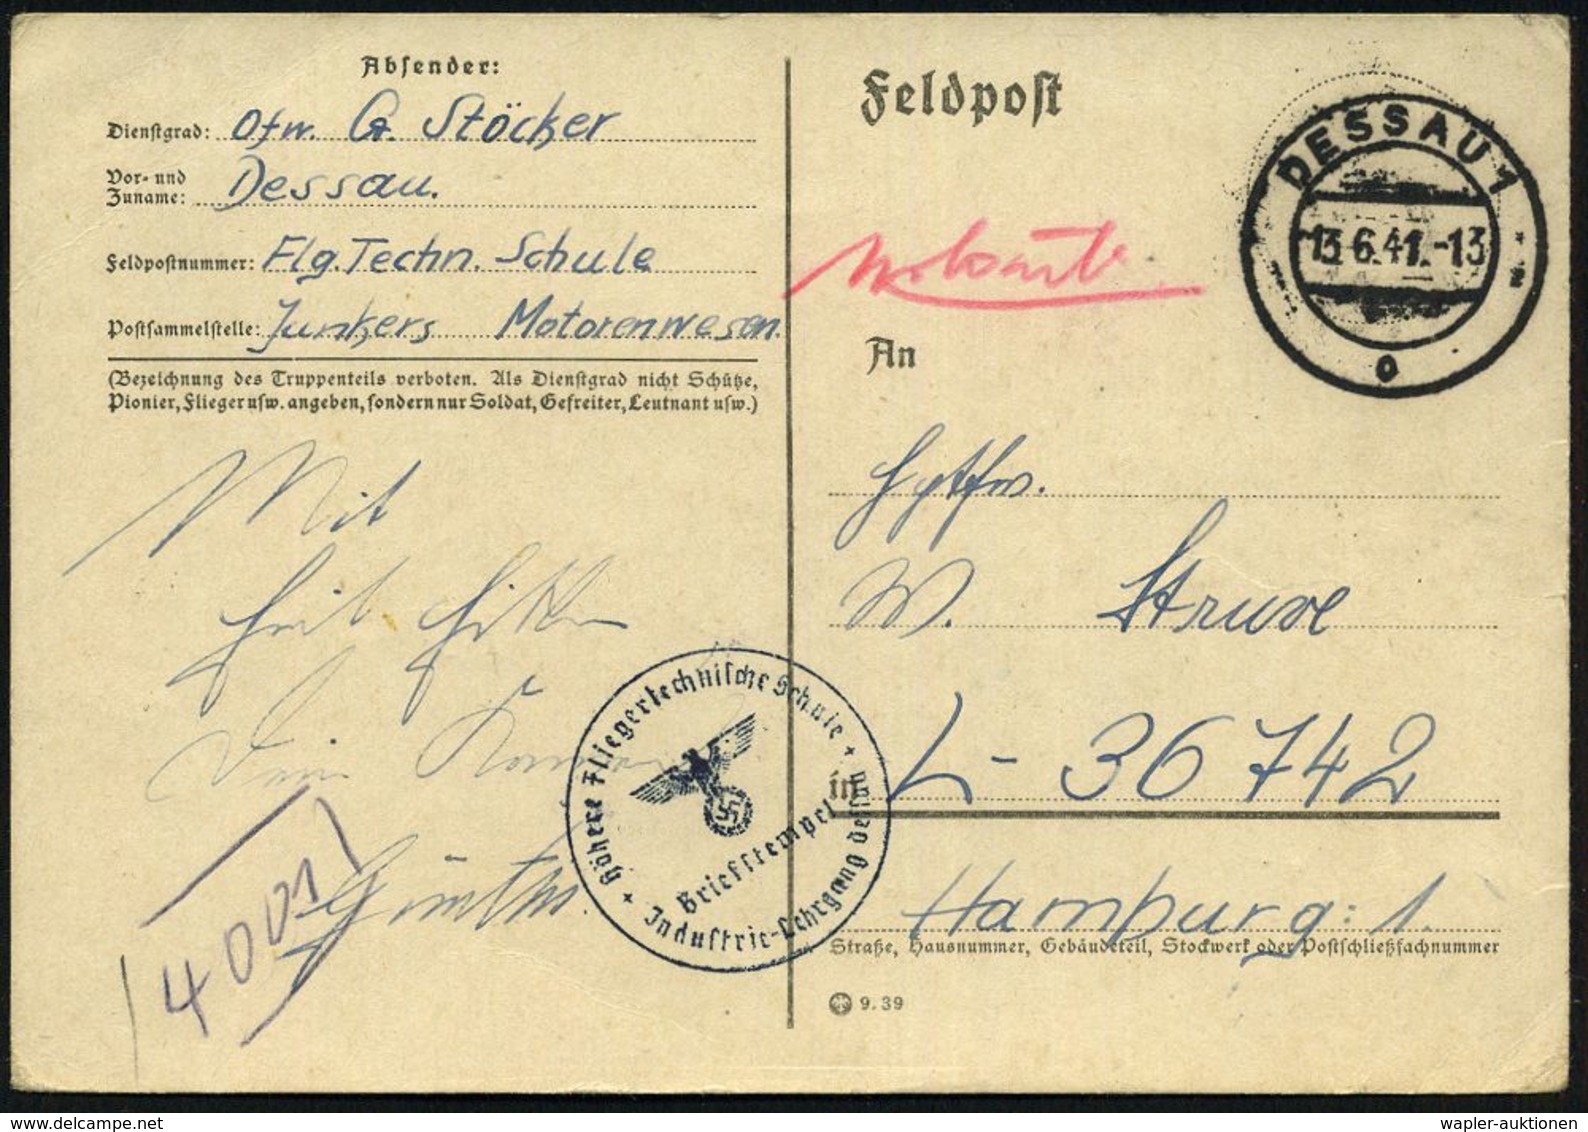 Absender:
Dienstgrad: Ofw. G. Stöcker
Vor- und
Zuname: Dessau.
Feldpostnummer: Flg. Techn. Schule
Postsammelstelle: Junkers Motorenwesen.
(Bezeichnung des Truppenteils verboten. Als Dienstgrad nicht Schütze,
Pionier, Flieger usw. angeben, sondern nur Soldat, Gefreiter, Leutnant usw.)
Mit
Heil Hitler
Dein
Günther
40011
Höhere Fliegertechnische Schule
Briefstempel
Industrie-Lehrgang Dessau
Feldpost
DESSAU 1
13.6.41.-13
o
An
Hptfw.
W. Struve
in L-36742
Hamburg: 1.
Straße, Hausnummer, Gebäudeteil, Stockwerk oder Postschließfachnummer
9.39
wapler-auktionen